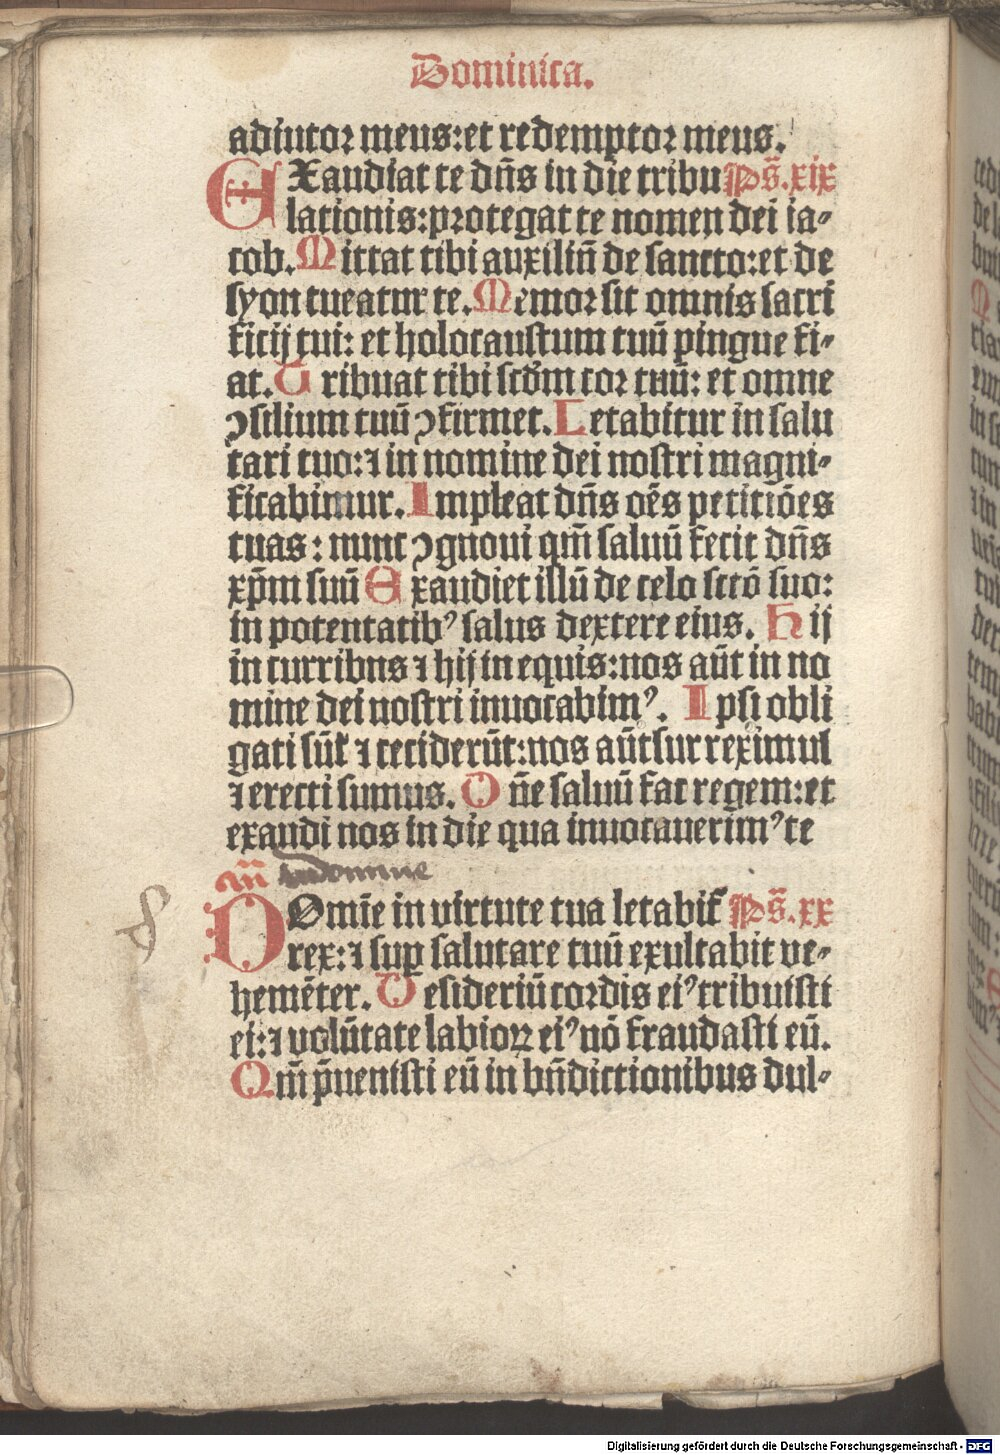 Dominica.
adiutoꝛ meus:et redemptoꝛ meus.
EXaudiat te dñs in die tribu Ps̄.xix
lationis:protegat te nomen dei ia-
cob. Mittat tibi auxiliū de sancto:et de
syon tueatur te. Memoꝛ sit omnis sacri
ficij tui: et holocaustum tuū pingue fi-
at. Tribuat tibi scd̄m coꝛ tuū: et omne
ꝯsilium tuū ꝯfirmet. Letabitur in salu
tari tuo:⁊ in nomine dei nostri magni-
ficabimur. Impleat dñs oēs petitiōes
tuas : nunc ꝯgnoui qm̄ saluū fecit dñs
xp̄m suū Exaudiet illū de celo sctō suo:
in potentatibꝰ salus dextere eius. Hij
in curribus ⁊ hij in equis:nos aūt in no
mine dei nostri inuocabimꝰ. Ipsi obli
gati sūt ⁊ ceciderūt:nos aūt surreximus
⁊ erecti sumus. Dñe saluū fac regem:et
exaudi nos in die qua inuocauerimꝰ te
an̄
DOmīe in virtute tua letabit̄ Ps̄.xx
rex:⁊ suꝑ salutare tuū exultabit ve-
hemēter. Desideriū coꝛdis eiꝰ tribuisti
ei:⁊ volūtate labioꝝ eiꝰ nō fraudasti eū.
Qm̄ p̄uenisti eū in bn̄dictionibus dul-
cedi
Digitalisierung gefördert durch die Deutsche Forschungsgemeinschaft - DFG